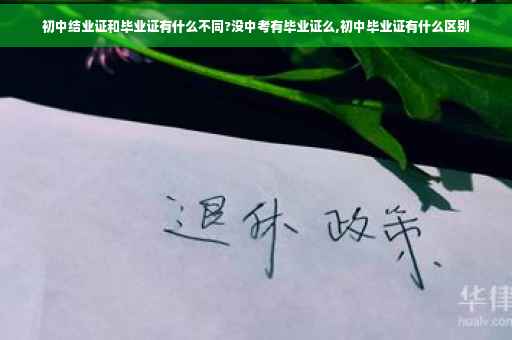 初中结业证和毕业证有什么不同?没中考有毕业证么,初中毕业证有什么区别
退休 政策
华律
hualv.com